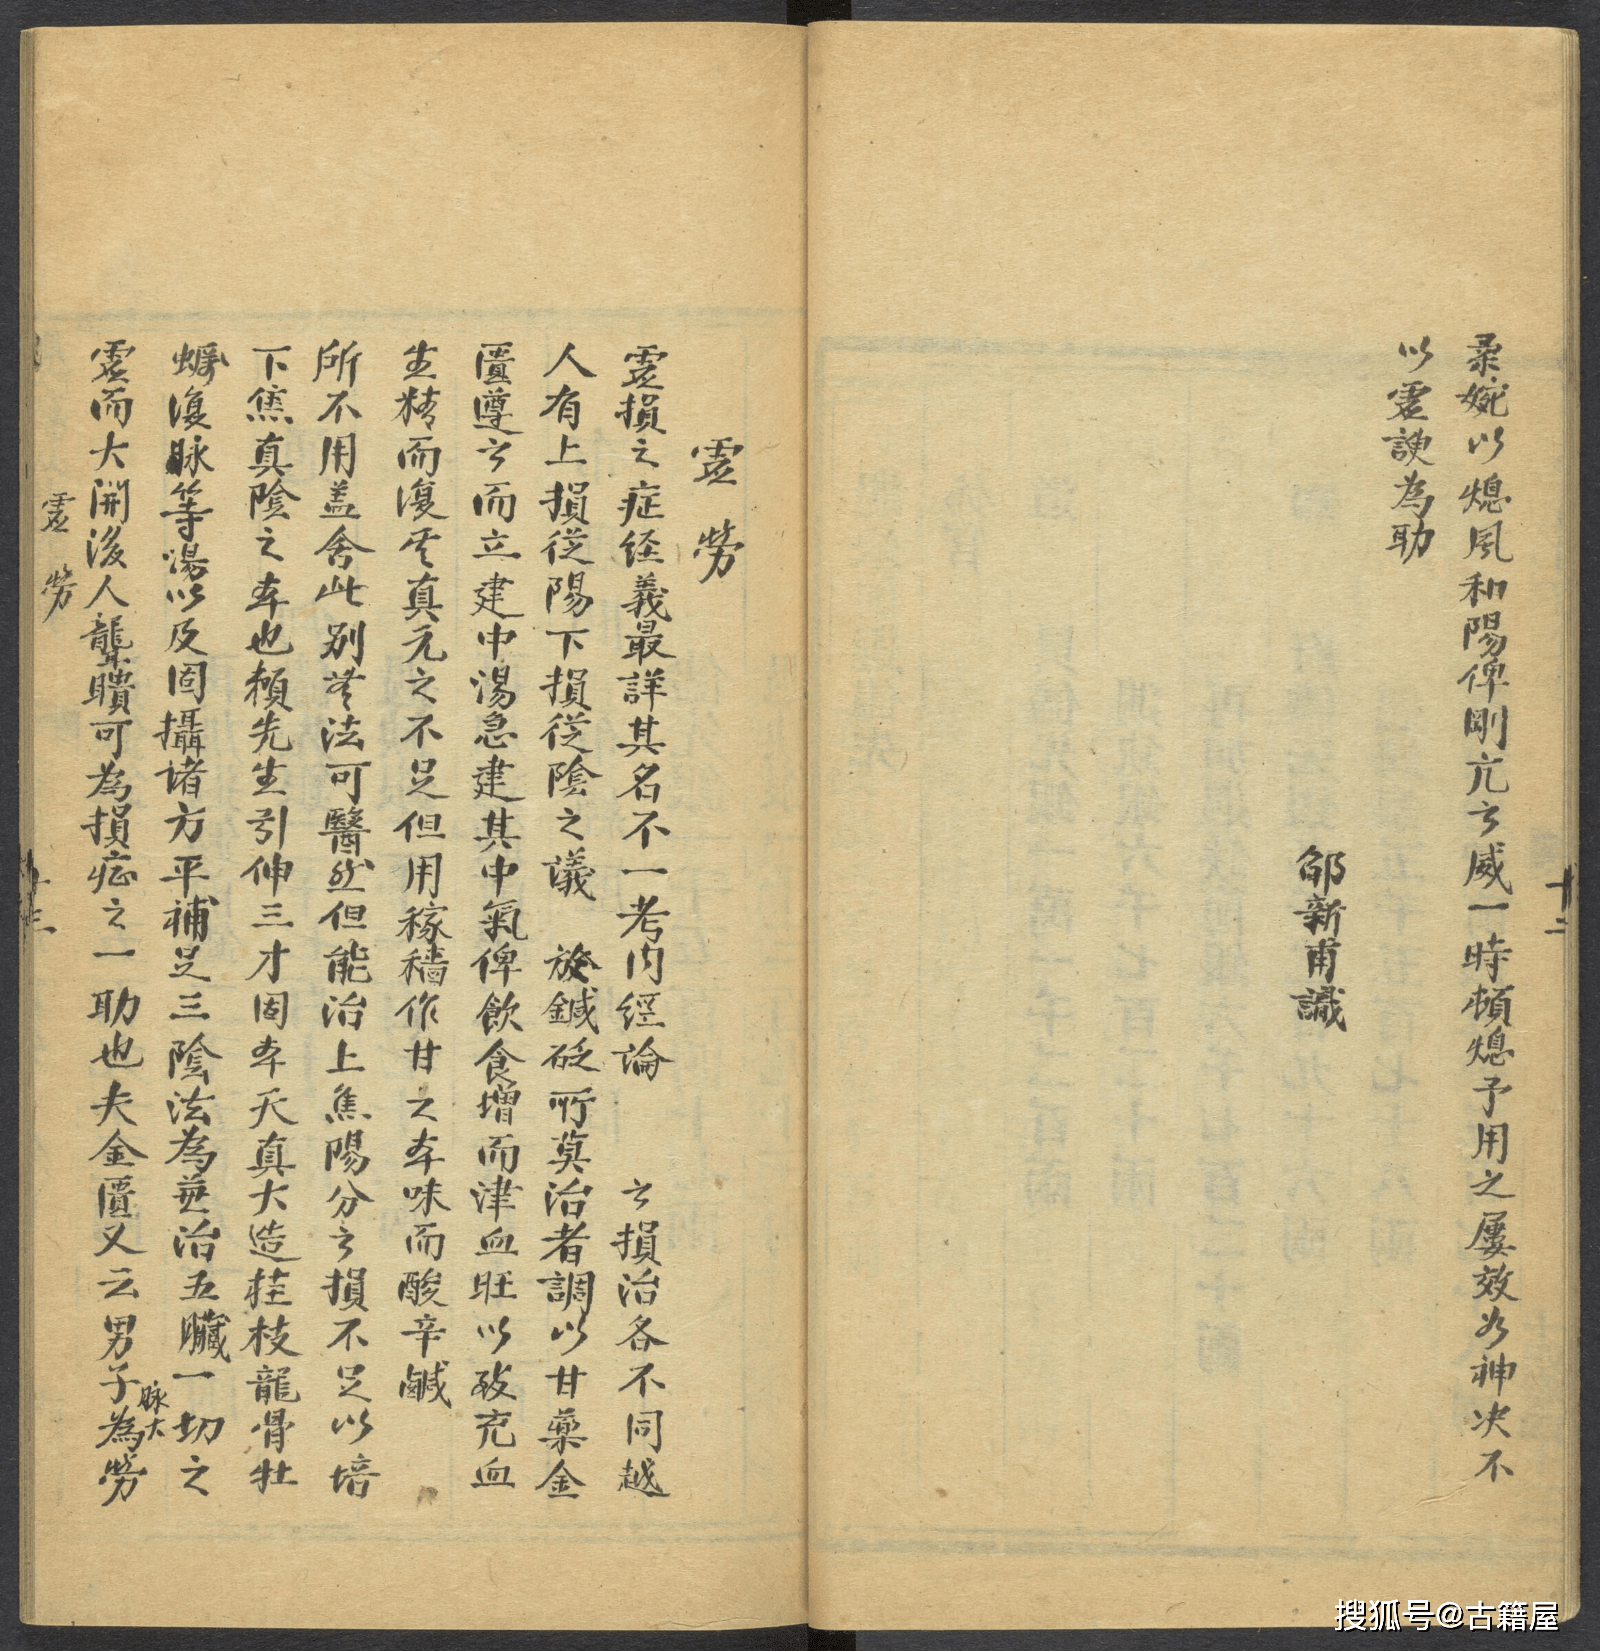 柔婉以熄風和陽俾剛亢之威一時頓熄予用之屢效如神决不
以虛諛為助
邵新甫識
十二
虛勞
虛損之症経義最詳其名不一考内經論 之損治各不同越
人有上損從陽下損從陰之議 於鍼砭所莫治者調以甘藥金
匱遵之而立建中湯急建其中氣俾飲食增而津血旺以致充血
生精而復其真元之不足但用稼穡作甘之本味而酸辛鹹
所不用盖舍此別無法可醫然但能治上焦陽分之損不足以培
下焦真陰之本也頼先生引伸三才固本天真大造桂枝龍骨牡
蠣復脉等湯以及固攝諸方平補足三陰法為兼治五臟一切之
虛而大開後人聾聵可為損症之一助也夫金匱又云男子脉大為勞
虛勞
十三
搜狐号@古籍屋